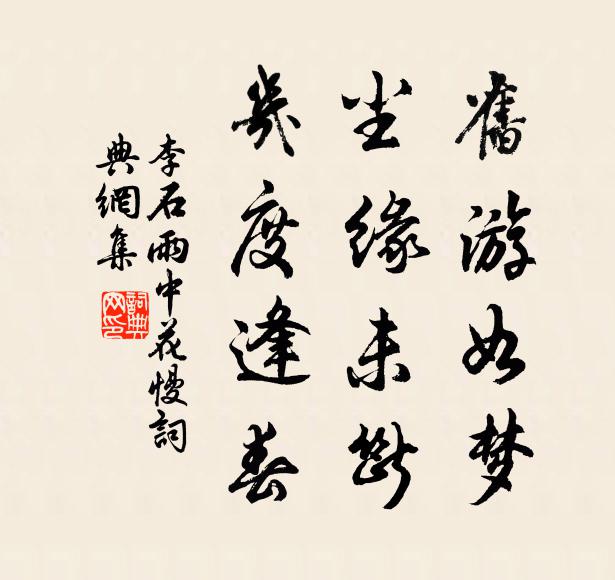 舊游如梦
尘緣未斷
幾度逢春
李石雨中花慢詞
典網集
詞典网印